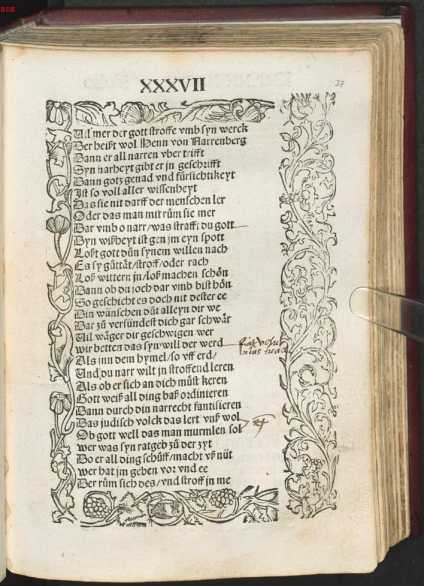 XXXVII
37
Uil mer der gott stroffe vmb syn werck
Der heißt wol Henn von Narrenberg
Dann er all narren vbertrifft
Syn narheyt gibt er jn geschrifft
Dann gotz genad vnd fürsichtikeyt
Ist so voll aller wissenheyt
Das sie nit darff der menschen ler
Oder das man mit rům sie mer
Dar vmb o narr / was straffstu gott
Dyn wißheyt ist gen jm eyn spott
Loßt gott důn synem willen nach
Es sy gůttät / stroff / oder rach
Loß wittern jn / loß machen schön
Dann ob du joch dar vmb bist hön
So geschicht es doch nit dester ee
Din wünschen důt alleyn dir we
Dar zů versündest dich gar schwär
Uil wäger dir geschwigen wer
Wir betten das syn will der werd
Als jnn dem hymel / so vff erd /
Und du nart wilt jn stroffend leren
Als ob er sich an dich můst keren
Gott weiß all ding baß ordinieren
Dann durch din narrecht fantisieren
Das judisch volck das lert vnß wol
Ob gott well das man murmlen sol
Wer was syn ratgeb zů der zyt
Do er all ding schůff / macht vß nüt
Wer hat jm geben vor vnd ee
Der rům sich des / vnd stroff jn me